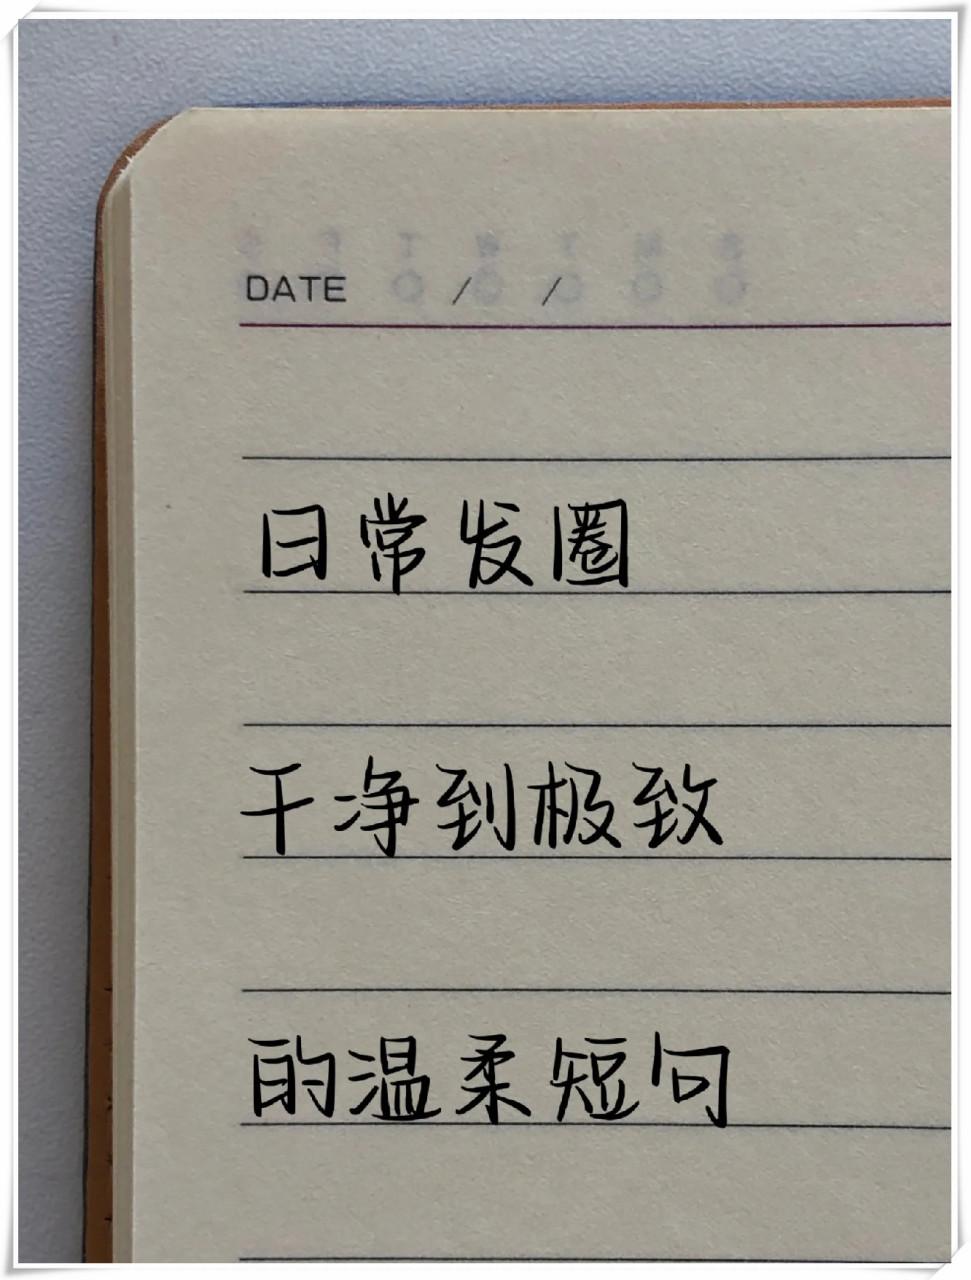 DATE / /
日常发圈
干净到极致
的温柔短句